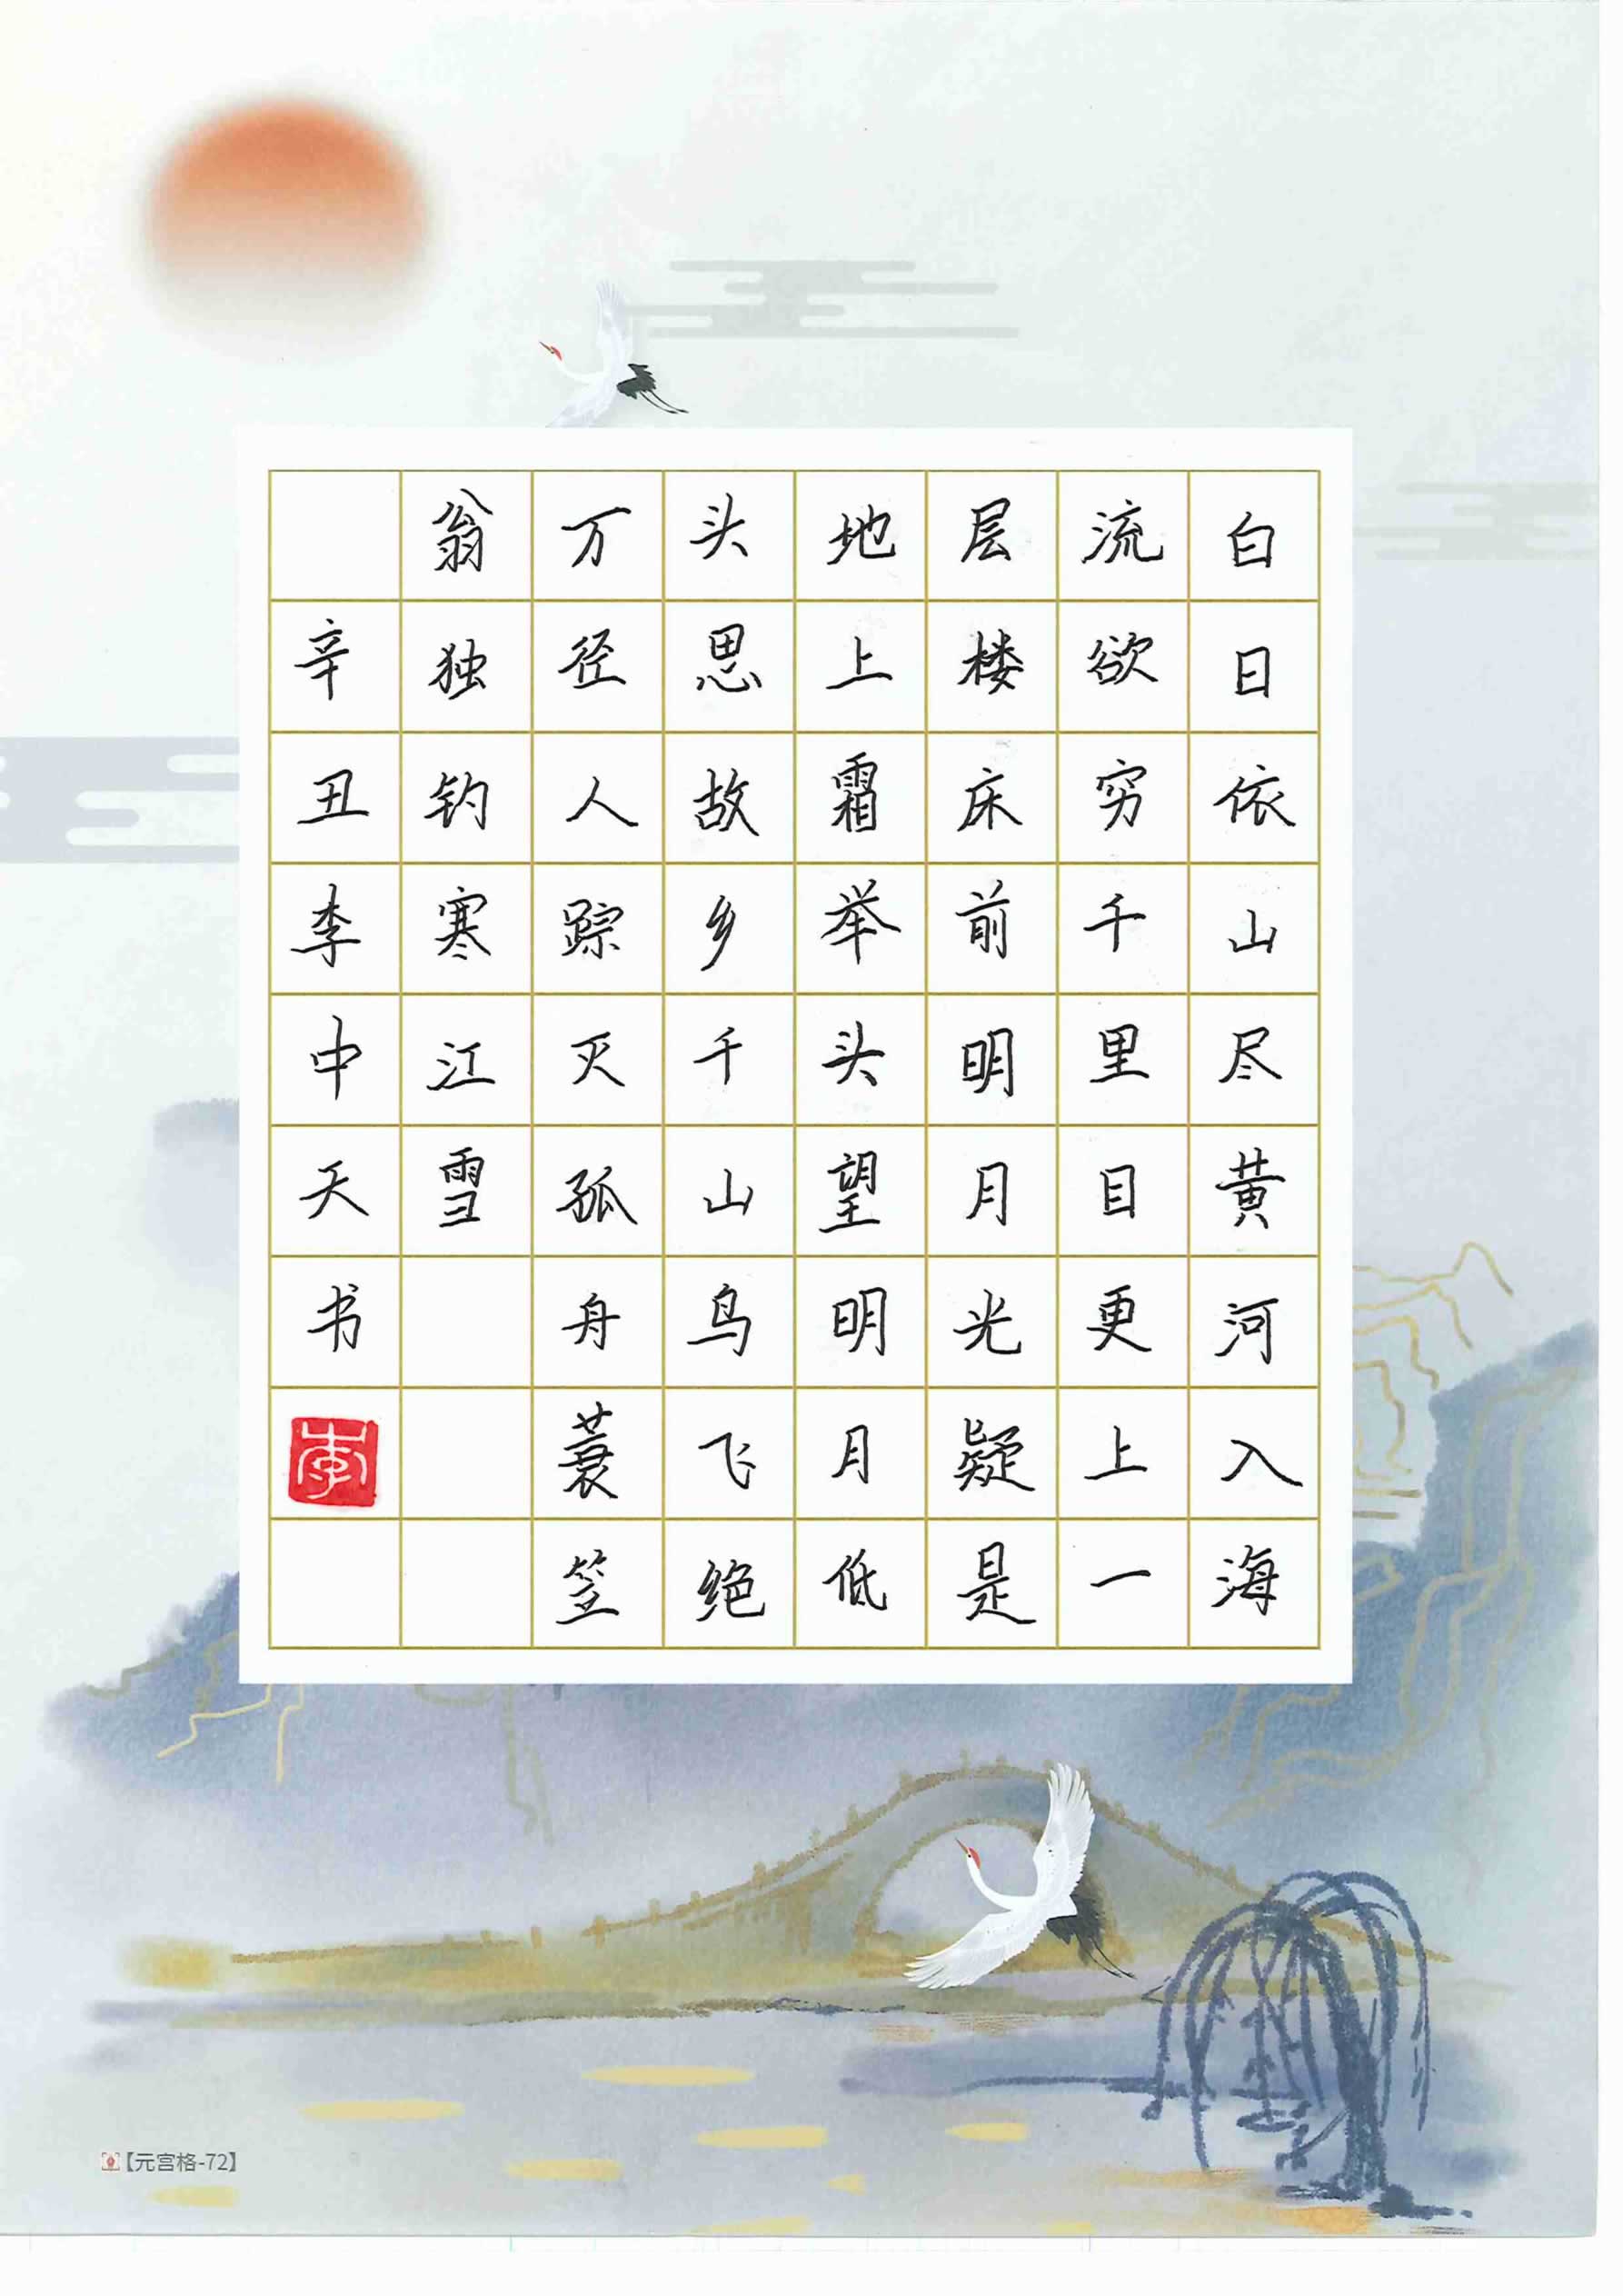 白日依山尽黄河入海
流欲穷千里目更上一
层楼床前明月光疑是
地上霜举头望明月低
头思故乡千山鸟飞绝
万径人踪灭孤舟蓑笠
翁独钓寒江雪
辛丑李中天书
李
【元宫格-72】